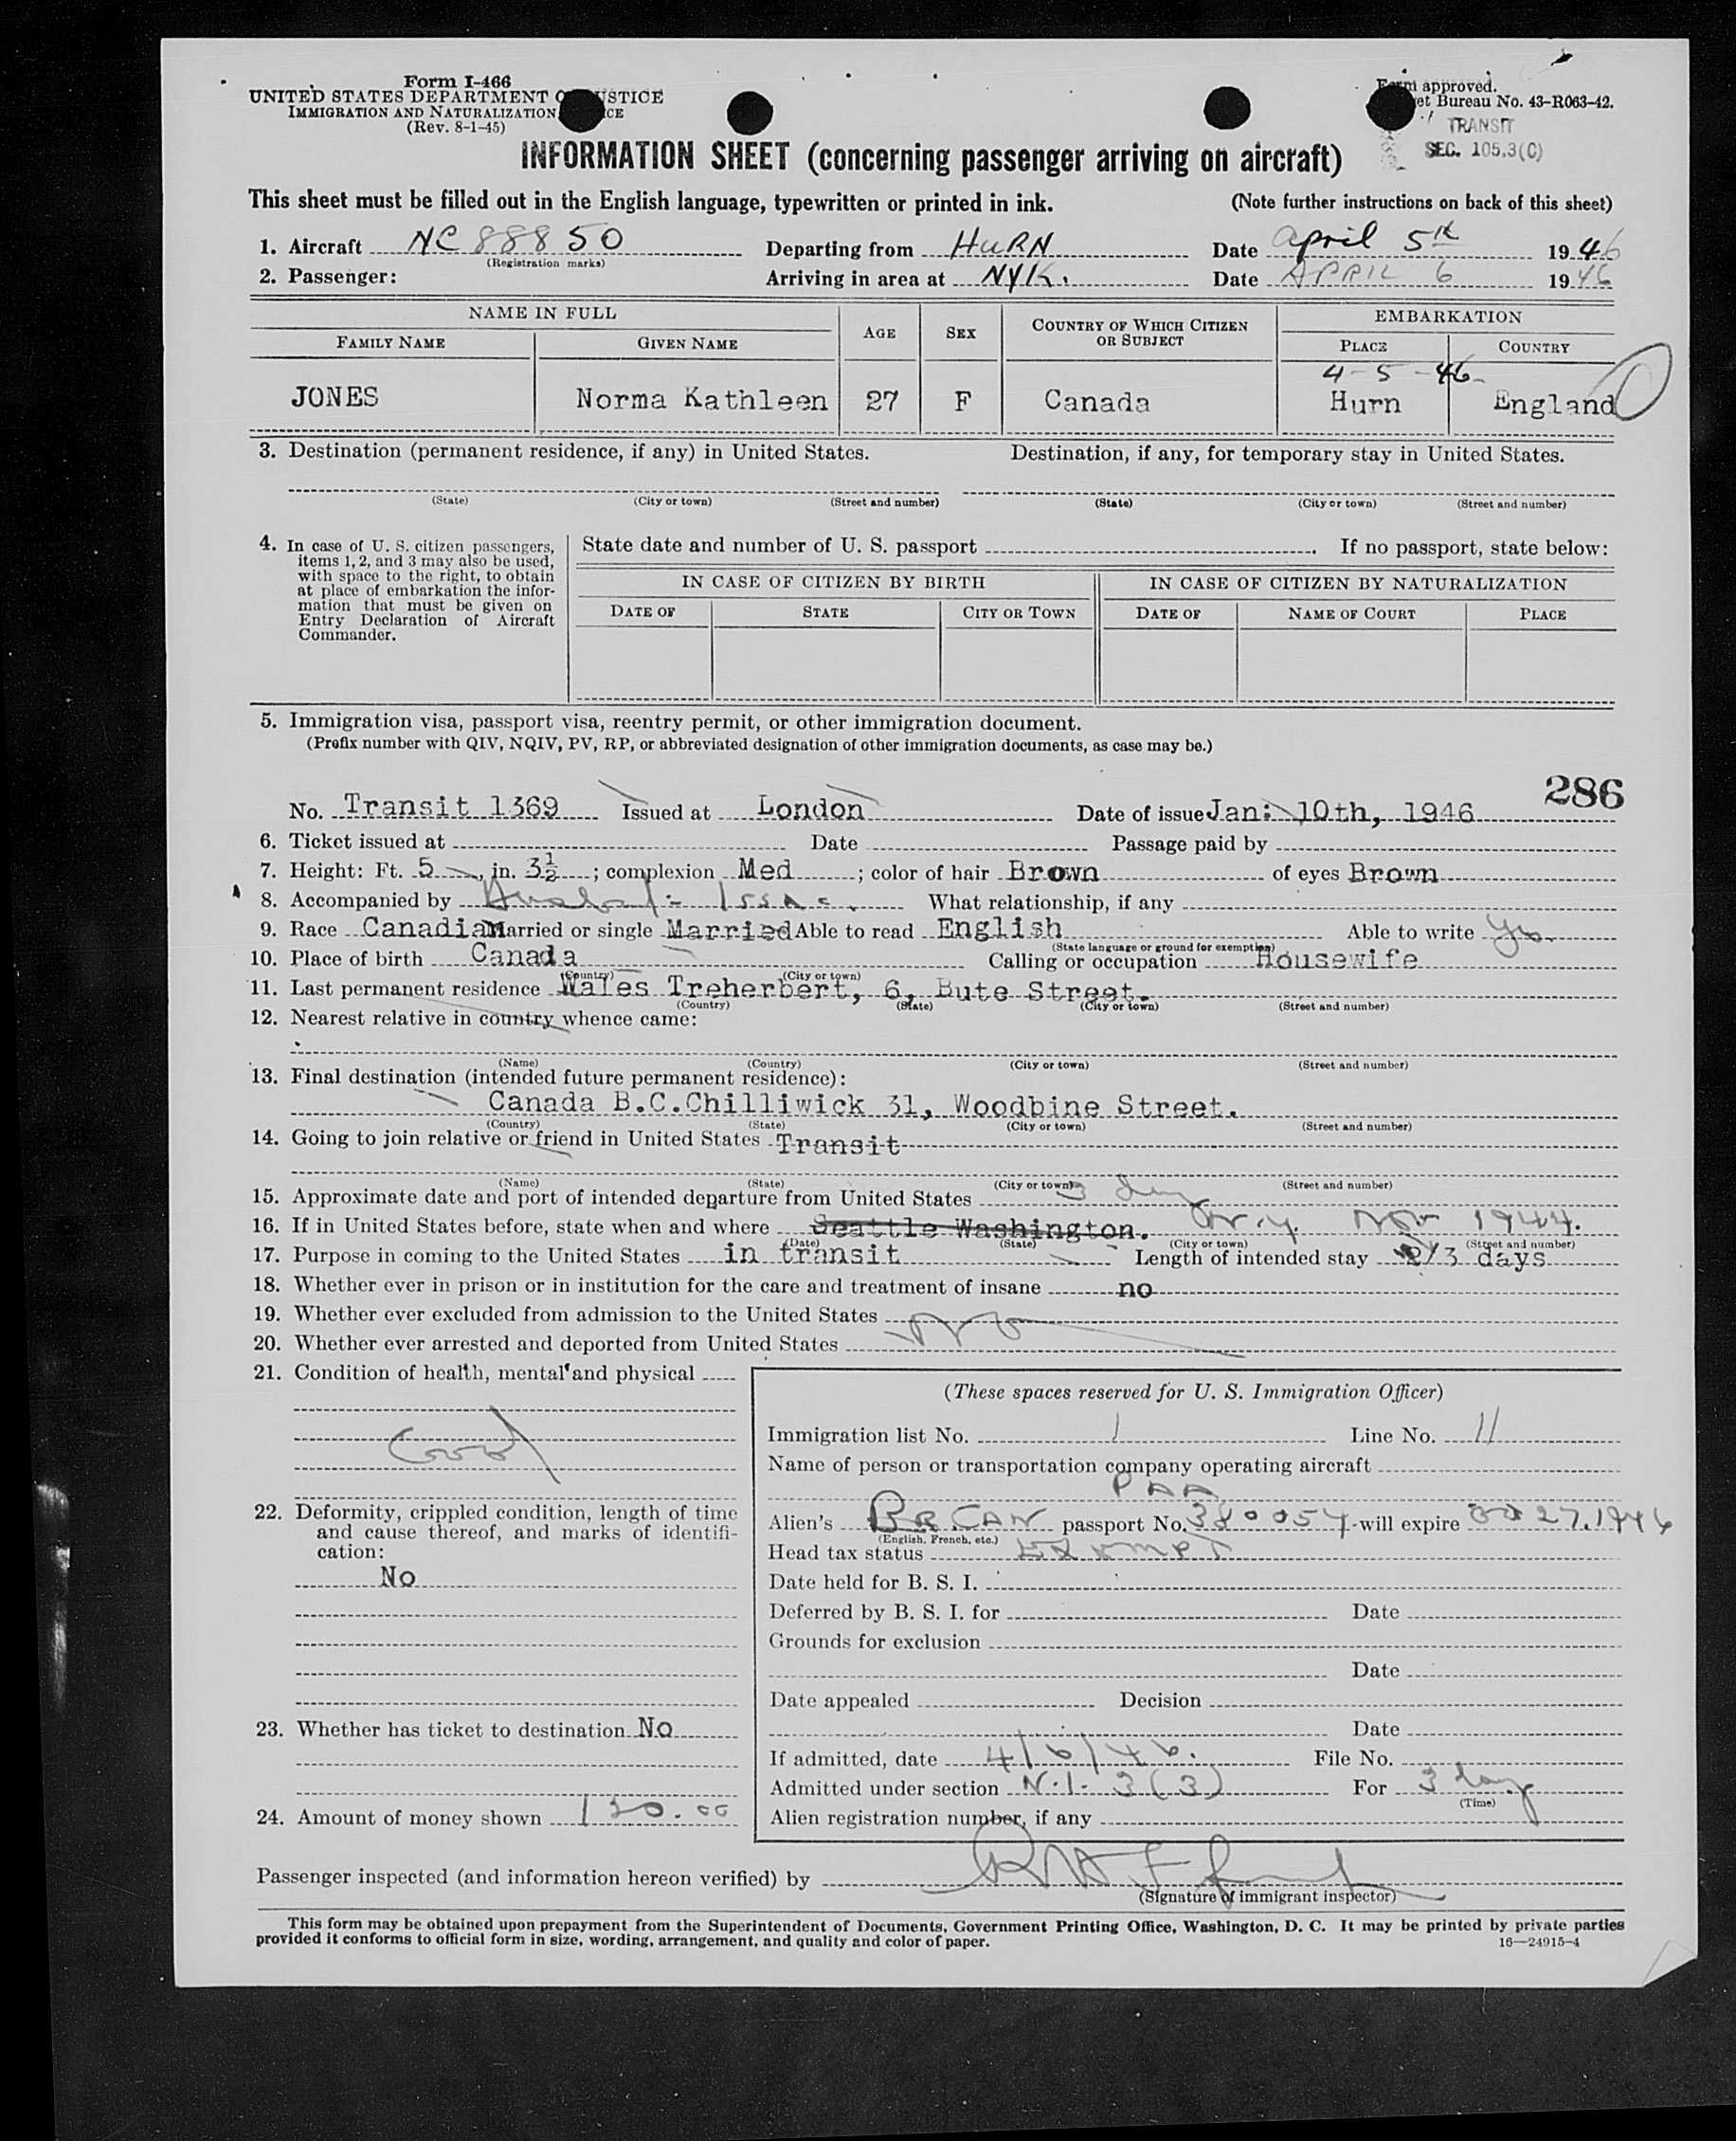 Form I-466
UNITED STATES DEPARTMENT O STICE
IMMIGRATION AND NATURALIZATION CE
(Rev. 8-1-45)
Form approved.
et Bureau No. 43-R063-42.
TRANSIT
SEC. 105.3(C)
INFORMATION SHEET (concerning passenger arriving on aircraft)
This sheet must be filled out in the English language, typewritten or printed in ink. (Note further instructions on back of this sheet)
1. Aircraft NC 88850 Departing from HURN Date April 5th 1946
(Registration marks)
2. Passenger: Arriving in area at NYK. Date APRIL 6 1946
NAME IN FULL AGE SEX COUNTRY OF WHICH CITIZEN OR SUBJECT EMBARKATION
FAMILY NAME GIVEN NAME PLACE COUNTRY
4-5-46-
JONES Norma Kathleen 27 F Canada Hurn England
3. Destination (permanent residence, if any) in United States. Destination, if any, for temporary stay in United States.
(State) (City or town) (Street and number) (State) (City or town) (Street and number)
4. In case of U. S. citizen passengers, items 1, 2, and 3 may also be used, with space to the right, to obtain at place of embarkation the information that must be given on Entry Declaration of Aircraft Commander.
State date and number of U. S. passport . If no passport, state below:
IN CASE OF CITIZEN BY BIRTH IN CASE OF CITIZEN BY NATURALIZATION
DATE OF STATE CITY OR TOWN DATE OF NAME OF COURT PLACE
5. Immigration visa, passport visa, reentry permit, or other immigration document.
(Prefix number with QIV, NQIV, PV, RP, or abbreviated designation of other immigration documents, as case may be.)
286
No. Transit 1369 Issued at London Date of issue Jan: 10th, 1946
6. Ticket issued at Date Passage paid by
7. Height: Ft. 5, in. 3½; complexion Med; color of hair Brown of eyes Brown
8. Accompanied by Husband - Issac. What relationship, if any
9. Race Canadian Married or single Married Able to read English Able to write Yes.
(State language or ground for exemption)
10. Place of birth Canada Calling or occupation Housewife
(Country) (City or town)
11. Last permanent residence Wales Treherbert, 6, Bute Street.
(Country) (State) (City or town) (Street and number)
12. Nearest relative in country whence came:
(Name) (Country) (City or town) (Street and number)
13. Final destination (intended future permanent residence):
Canada B.C.Chilliwick 31, Woodbine Street.
(Country) (State) (City or town) (Street and number)
14. Going to join relative or friend in United States Transit
(Name) (State) (City or town) (Street and number)
15. Approximate date and port of intended departure from United States 3 days
16. If in United States before, state when and where Seattle Washington. N.Y. Nov 1944.
(Date) (State) (City or town) (Street and number)
17. Purpose in coming to the United States in transit Length of intended stay 2/3 days
18. Whether ever in prison or in institution for the care and treatment of insane no
19. Whether ever excluded from admission to the United States No
20. Whether ever arrested and deported from United States
21. Condition of health, mental and physical
Good
22. Deformity, crippled condition, length of time and cause thereof, and marks of identification:
No
23. Whether has ticket to destination No
24. Amount of money shown 120.00
(These spaces reserved for U. S. Immigration Officer)
Immigration list No. 1 Line No. 11
Name of person or transportation company operating aircraft
PAA
Alien's BR CAN passport No. 380054 will expire 27.1946
(English, French, etc.)
Head tax status EXEMPT
Date held for B. S. I.
Deferred by B. S. I. for Date
Grounds for exclusion
Date
Date appealed Decision
Date
If admitted, date 4/6/46. File No.
Admitted under section N.I. 3(3) For 3 days
(Time)
Alien registration number, if any
Passenger inspected (and information hereon verified) by
(Signature of immigrant inspector)
This form may be obtained upon prepayment from the Superintendent of Documents, Government Printing Office, Washington, D. C. It may be printed by private parties
provided it conforms to official form in size, wording, arrangement, and quality and color of paper. 16—24915-4